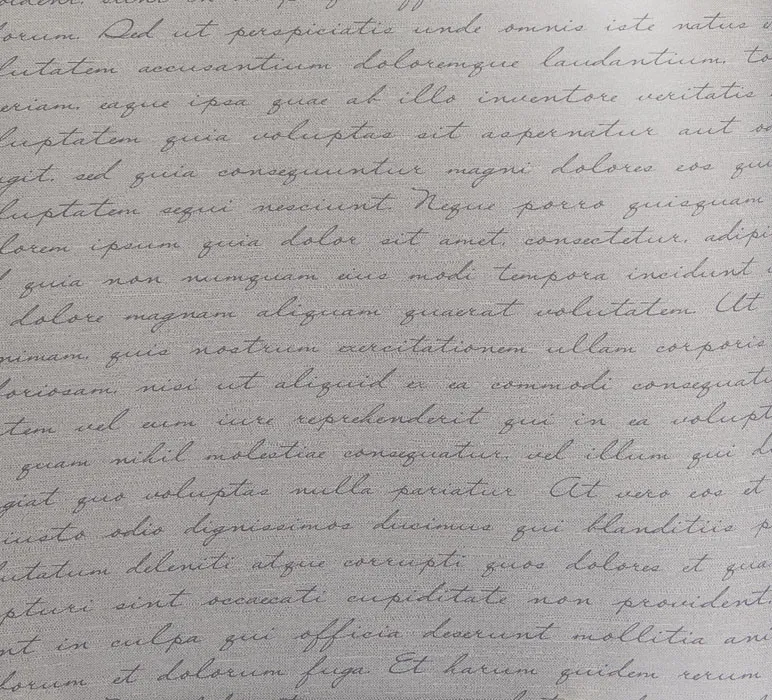 orum. Sed ut perspiciatis unde omnis iste natus
lutatem accusantium doloremque laudantium, to
eriam, eaque ipsa quae ab illo inventore veritatis
luptatem quia voluptas sit aspernatur aut
git, sed quia consequuntur magni dolores eos qui
luptatem sequi nesciunt. Neque porro quisquam
lorem ipsum quia dolor sit amet, consectetur, adipi
quia non numquam eius modi tempora incidunt
dolore magnam aliquam quaerat volutatem. Ut
nimam, quis nostrum exercitationem ullam corporis
loriosam, nisi ut aliquid ex ea commodi consequatu
tem vel eum iure reprehenderit qui in ea volupt
quam nihil molestiae consequatur, vel illum qui do
giat quo voluptas nulla pariatur At vero eos et
iusto odio dignissimos ducimus qui blanditiis p
lutatum deleniti atque corrupti quos dolores et qua
pturi sint occaecati cupiditate non provident,
nt in culpa qui officia deserunt mollitia ani
borum et dolorum fuga. Et harum quidem rerum